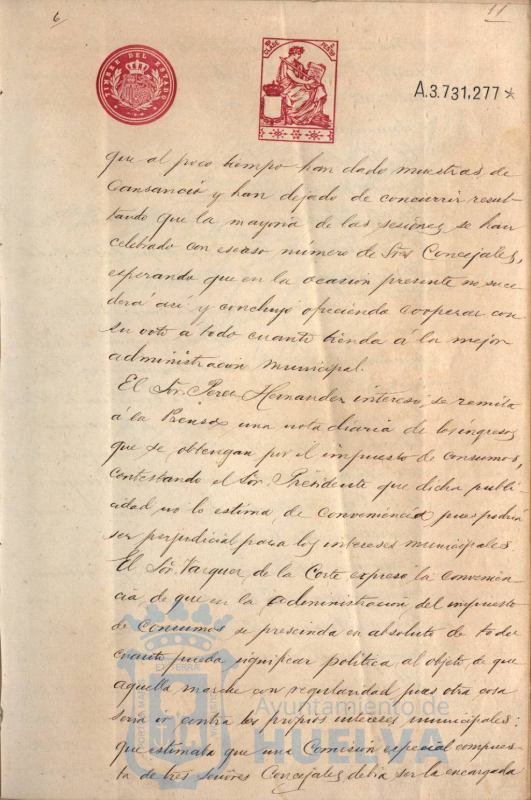 6
11
TIMBRE DEL ESTADO
A.3.731.277*
que al poco tiempo han dado muestras de
Cansancio y han dejado de concurrir resul-
tando que la mayoria de las sesiones se han
celebrado con escaso número de Sres Concejales,
esperando que en la ocasion presente no suce-
derá así y concluyó ofreciendo cooperar con
su voto a todo cuanto tienda á la mejor
administracion municipal.
El Sor. Perez Hernandez interesó, se remita
á la Prensa una nota diaria de los ingresos
que se obtengan por el impuesto de consumos,
contestando el Sor. Presidente que dicha publi-
cidad no lo estima de conveniencia, pues podria
ser perjudicial para los intereses municipales.
El Sor. Vazquez de la Corte expresó la convenien-
cia de que en la administracion del impuesto
de Consumos se prescinda en absoluto de todo
cuanto pueda significar política al objeto de que
aquella marche con regularidad pues otra cosa
seria ir contra los propios intereses municipales:
que estimaba que una Comisión especial compues-
ta de tres señores Concejales debia ser la encargada
Ayuntamiento de
HUELVA